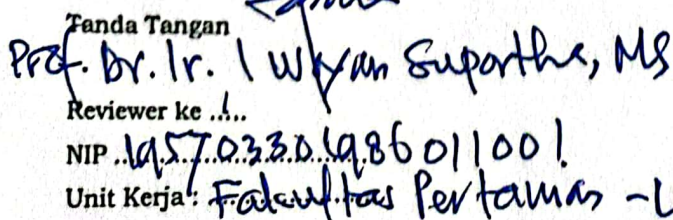 Tanda Tangan
Prof. Dr. Ir. I Wayan Supartha, MS
Reviewer ke ..1..
NIP ..195703301986011001.
Unit Kerja : Fakultas Pertanian -